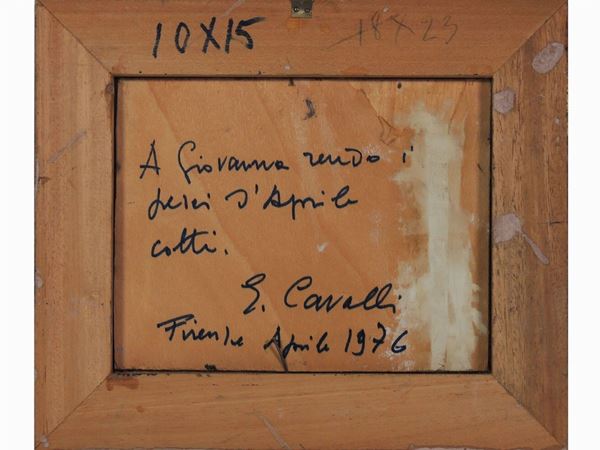 10X15
18X23
A Giovanna rendo i
pesci d'Aprile
cotti.
E. Cavalli
Firenze Aprile 1976